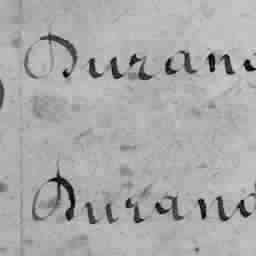 Durand
Durand